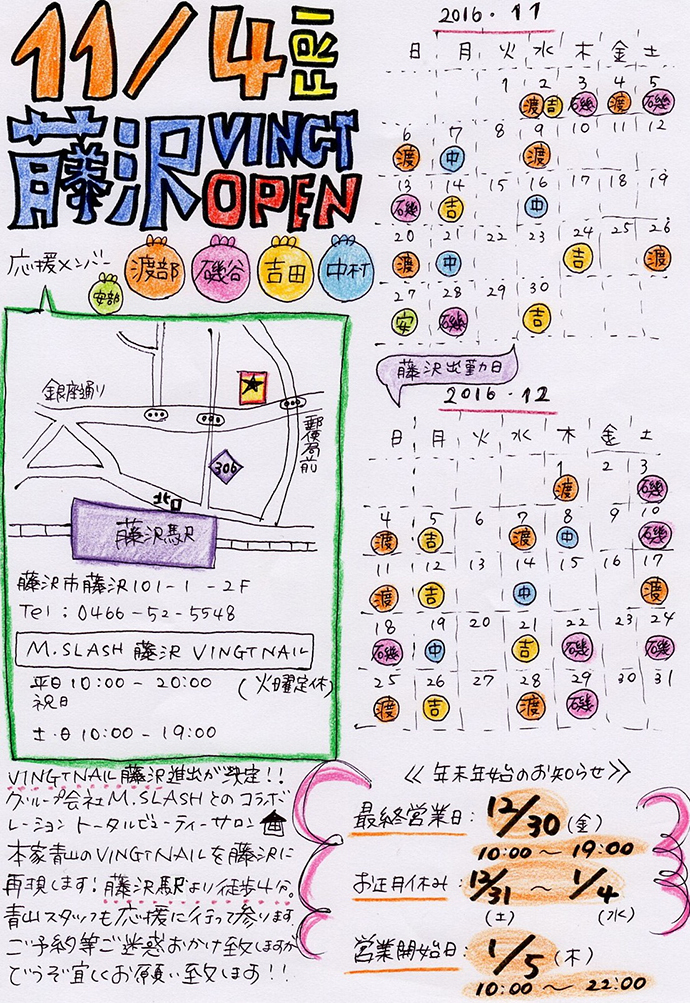 11/4 FRI
藤沢 VINGT
OPEN
応援メンバー
安部
渡部
磯谷
吉田
中村
銀座通り
郵便局前
306
北口
藤沢駅
藤沢市藤沢101-1-2F
Tel:0466-52-5548
M.SLASH 藤沢 VINGTNAIL
平日 10:00 - 20:00 (火曜定休)
祝日
土・日 10:00 - 19:00
VINGTNAIL藤沢進出が決定!!
グループ会社M.SLASHとのコラボ
レーション トータルビューティーサロン
本家青山のVINGTNAILを藤沢に
再現します!藤沢駅より徒歩4分。
青山スタッフも応援に行って参ります
ご予約等ご迷惑おかけ致しますが
どうぞ宜しくお願い致します!!
2016.11
日 月 火 水 木 金 土
1 2 3 4 5
渡 吉 磯 渡 磯
6 7 8 9 10 11 12
渡 中 渡
13 14 15 16 17 18 19
磯 吉 中
20 21 22 23 24 25 26
渡 中 吉 渡
27 28 29 30
安 磯 吉
藤沢出勤日
2016.12
日 月 火 水 木 金 土
1 2 3
渡 磯
4 5 6 7 8 9 10
渡 吉 渡 中 磯
11 12 13 14 15 16 17
渡 吉 中 渡
18 19 20 21 22 23 24
磯 中 吉 磯 磯
25 26 27 28 29 30 31
渡 吉 渡 磯
≪年末年始のお知らせ≫
最終営業日: 12/30(金)
10:00~19:00
お正月休み: 12/31~1/4
(土) (水)
営業開始日: 1/5(木)
10:00~22:00